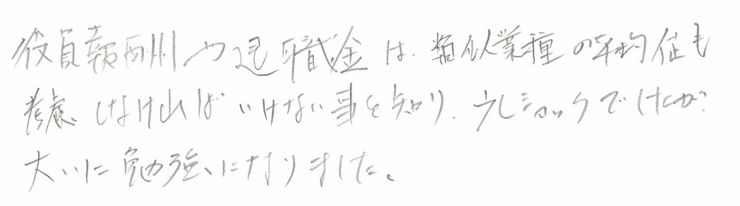 役員報酬や退職金は、類似業種の平均値も
考慮しなければいけない事を知り、少しショックでしたが?
大いに勉強になりました。